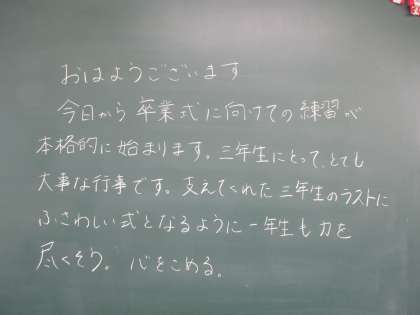 おはようございます
今日から卒業式に向けての練習が
本格的に始まります。三年生にとって、とても
大事な行事です。支えてくれた三年生のラストに
ふさわしい式となるように一年生も力を
尽くそう。心をこめる。